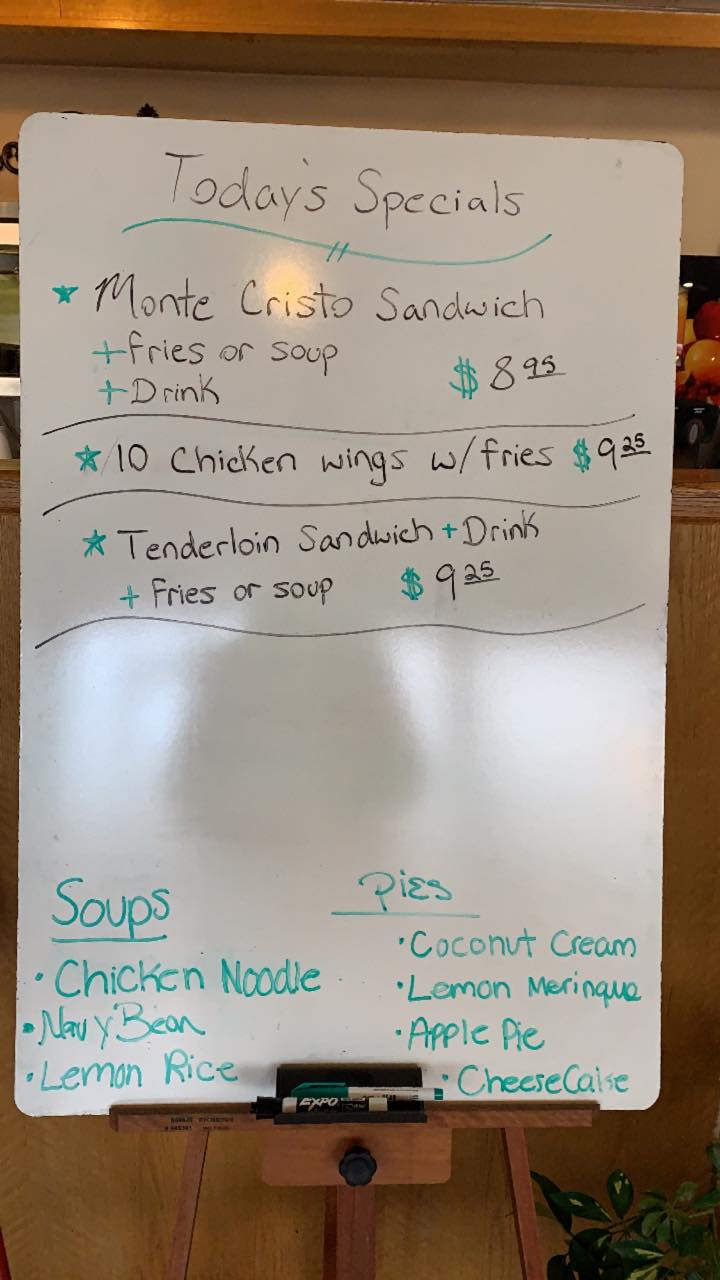 Today's Specials
Monte Cristo Sandwich
+fries or soup
+Drink
$ 8 95
10 Chicken wings w/fries $9 25
Tenderloin Sandwich + Drink
+ Fries or soup $ 9 25
Soups
· Chicken Noodle
· Navy Bean
· Lemon Rice
Pies
· Coconut Cream
· Lemon Meringue
· Apple Pie
· CheeseCake
EXPO